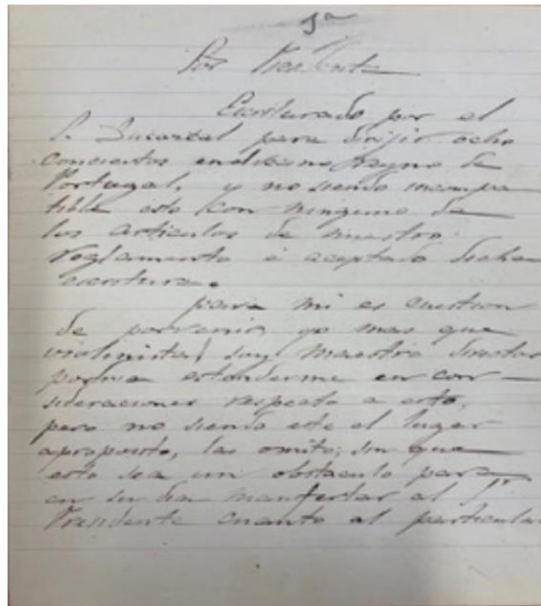 1ª
Sor Presidente
Escriturado por el
Sr. Ducazcal para dirijir ocho
conciertos en el vecino Reyno de
Portugal, y no siendo incompa
tible esto con ninguno de
los articulos de nuestro
reglamento é aceptado dicha
escritura.
para mi es cuestion
de porvenir, yo mas que
violinista, soy maestro director
podria estenderme en con-
sideraciones respecto a esto,
pero no siendo este el lugar
aproposito, las omito; sin que
esto sea un obstaculo para
en su dia manifestar al Sr
Presidente cuanto al particular